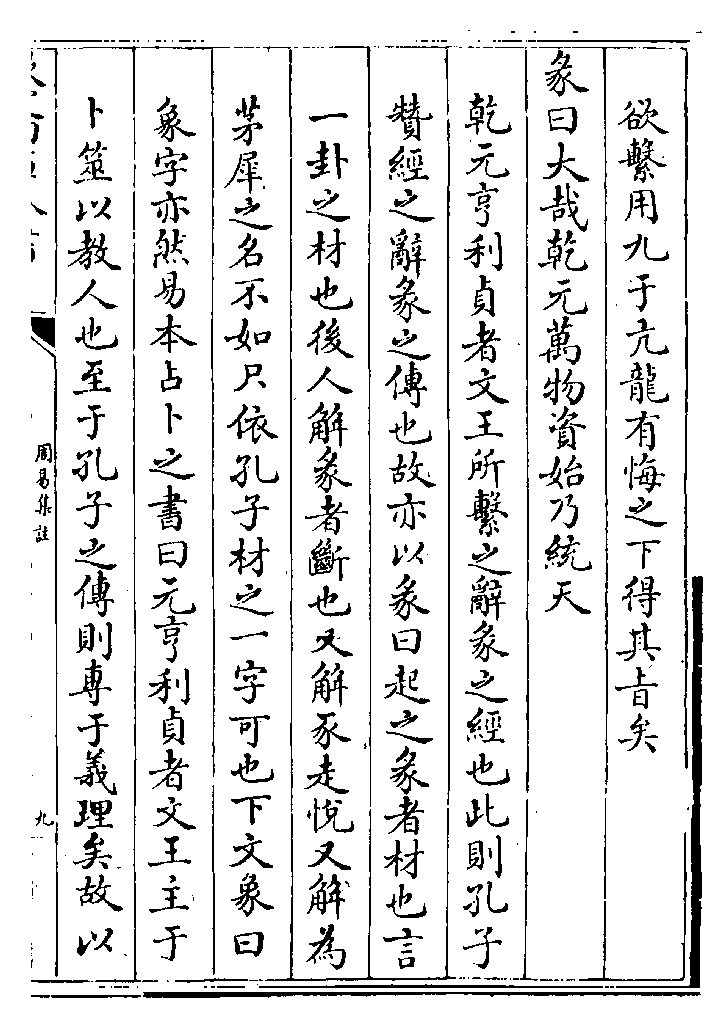 欲繫用九于亢龍有悔之下得其旨矣
彖曰大哉乾元萬物資始乃統天
乾元亨利貞者文王所繫之辭彖之經也此則孔子
贊經之辭彖之傳也故亦以彖曰起之彖者材也言
一卦之材也後人解彖者斷也又解豕走悅又解為
茅犀之名不如只依孔子材之一字可也下文象曰
象字亦然易本占卜之書曰元亨利貞者文王主于
卜筮以教人也至于孔子之傳則專于義理矣故以
周易集註
九